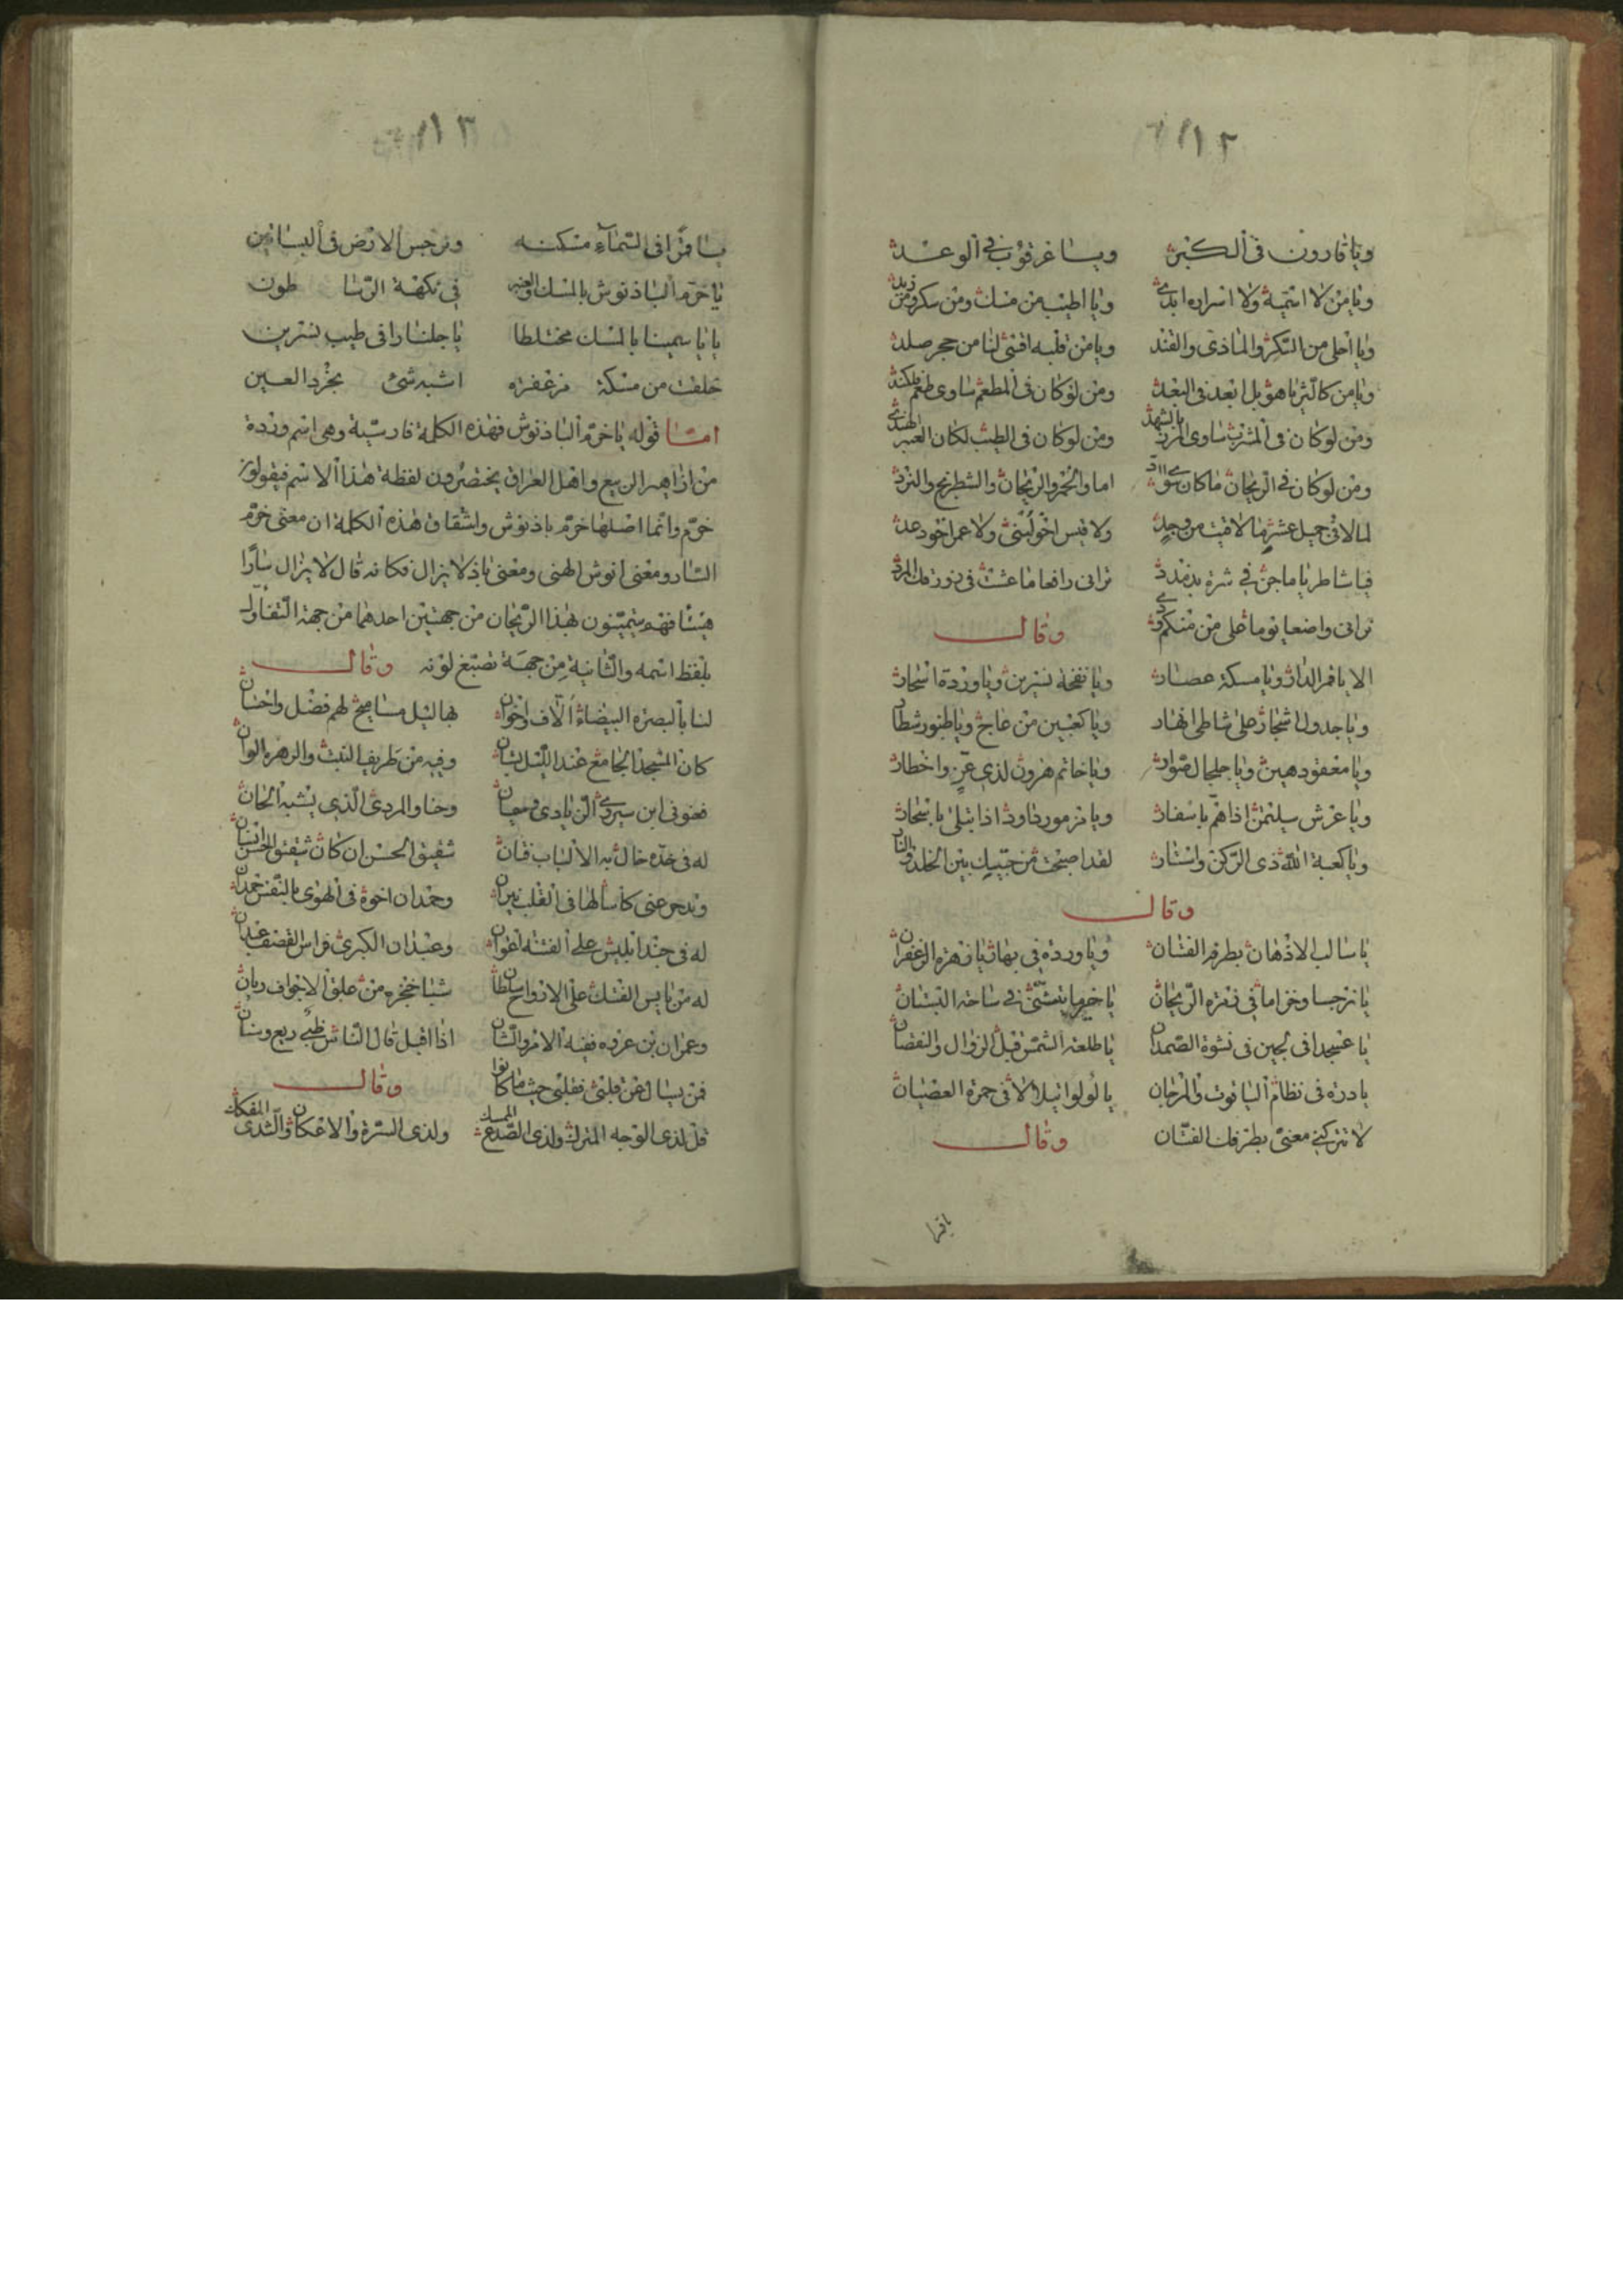 ١٢
ويا قارون في الكبر ويا عرقوب في الوعد
ويا من لا اسميه ولا اسراره ابدي ويا اطيب من مسك ومن سكر ومن زبد
ويا احلى من السكر والماذي والقند ويا من قلبه اقسى لنا من حجر صلد
ويا من كالثريا هو بل ابعد في البعد ومن لو كان في المطعم ساوى طعم
ومن لو كان في المشرب ساوى بالشهد ومن لو كان في الطيب لكان العنبر الهندي
ومن لو كان في الريحان ما كان سوى اما والخمر والريحان والشطرنج والنرد
لما لاقى جميل عشر ما لاقيت من وجد ولا قيس اخو لبنى ولا عمر اخو دعد
فيا شاطر يا ماجن في تراني رافعا ما عشت في
تراني واضعا يوما على من منكم وقال
الا يا قمر الدار ويا مسكة عطار ويا نفحة نسرين ويا وردة اشجار
ويا جدول اشجار على شاطي انهار ويا كعبين من عاج ويا طنبور شطار
ويا ويا خاتم هرون لذي عز واخطار
ويا عرش سليمن اذا هم باسفار ويا مزمور داود اذا يتلى باسحار
ويا كعبة الله ذي الركن واستار لقد اصبحت من حبيك بين الخلد والنار
وقال
يا سالب الاذهان بطرفه الفتان ويا وردة في بهار يا زهرة الزعفران
يا نرجسا وخزاما في زهرة الريحان يا تمشى في ساحة البستان
يا عسجدا في لجين في نشوة يا طلعة الشمس قبل الزوال والنقصان
يا درة في نظام الياقوت والمرجان يا لولوا يتلألأ في حمرة العقيان
لا تتركني معنى بطرفك الفتان وقال
١٣
يا قمرا في السماء مسكنه ونرجس الارض في البساتين
يا خرم الباذنوش بالمسك والعنبر في نكهة الرسا طون
يا ياسمينا بالمسك مختلطا يا جلنارا في طيب نسرين
خلقت من مسكة مزعفره اشبه شئ بخرد العين
اما قوله يا خرم الباذنوش فهذه الكلمة فارسية وهي اسم وردة
من ازاهير الربيع واهل العراق يختصرون لفظة هذا الاسم فيقولون
خرم وانما اصلها خرم باذنوش واشتقاق هذه الكلمة ان معنى خرم
السار ومعنى انوش الهني ومعنى باذ لا يزال فكانه قال لا يزال سارا
هنيئا فهم يتيمنون بهذا الريحان من جهتين احدهما من جهة التفاول
بلفظ اسمه والثانية من جهة تصبغ لونه وقال
لنا بالبصرة البيضاء الاف واخوان بها ليل مساميح لهم فضل واحسان
كان المسجد الجامع عند الليل بستان وفيه من طريف النبت والزهرة الوان
ابن سيري الزيادي وحنا والمردي الذي يشبه الجان
له في خده خال به الالباب فتان شقيق الحسن ان كان شقيق الحسن انسان
عني كاسا لها في القلب نيران وحمدان اخوه في الهوى بالنفس حمدان
له في جند ابليس على الفتنة اعوان وعبدان الكبرى فراس
له من يابس الفتك على الارواح سلطان شبا خنجره من علق الاجواف ريان
وعمران بن عروه ففيه الامر والشان اذا اقبل قال الناس ظبي ريع وسنان
فمن يسال عن قلبي فقلبي حيث ما كانوا وقال
قل لذي الوجه ولذي الصدغ الممسك ولذي السرة والاعكان والثدي المفلك